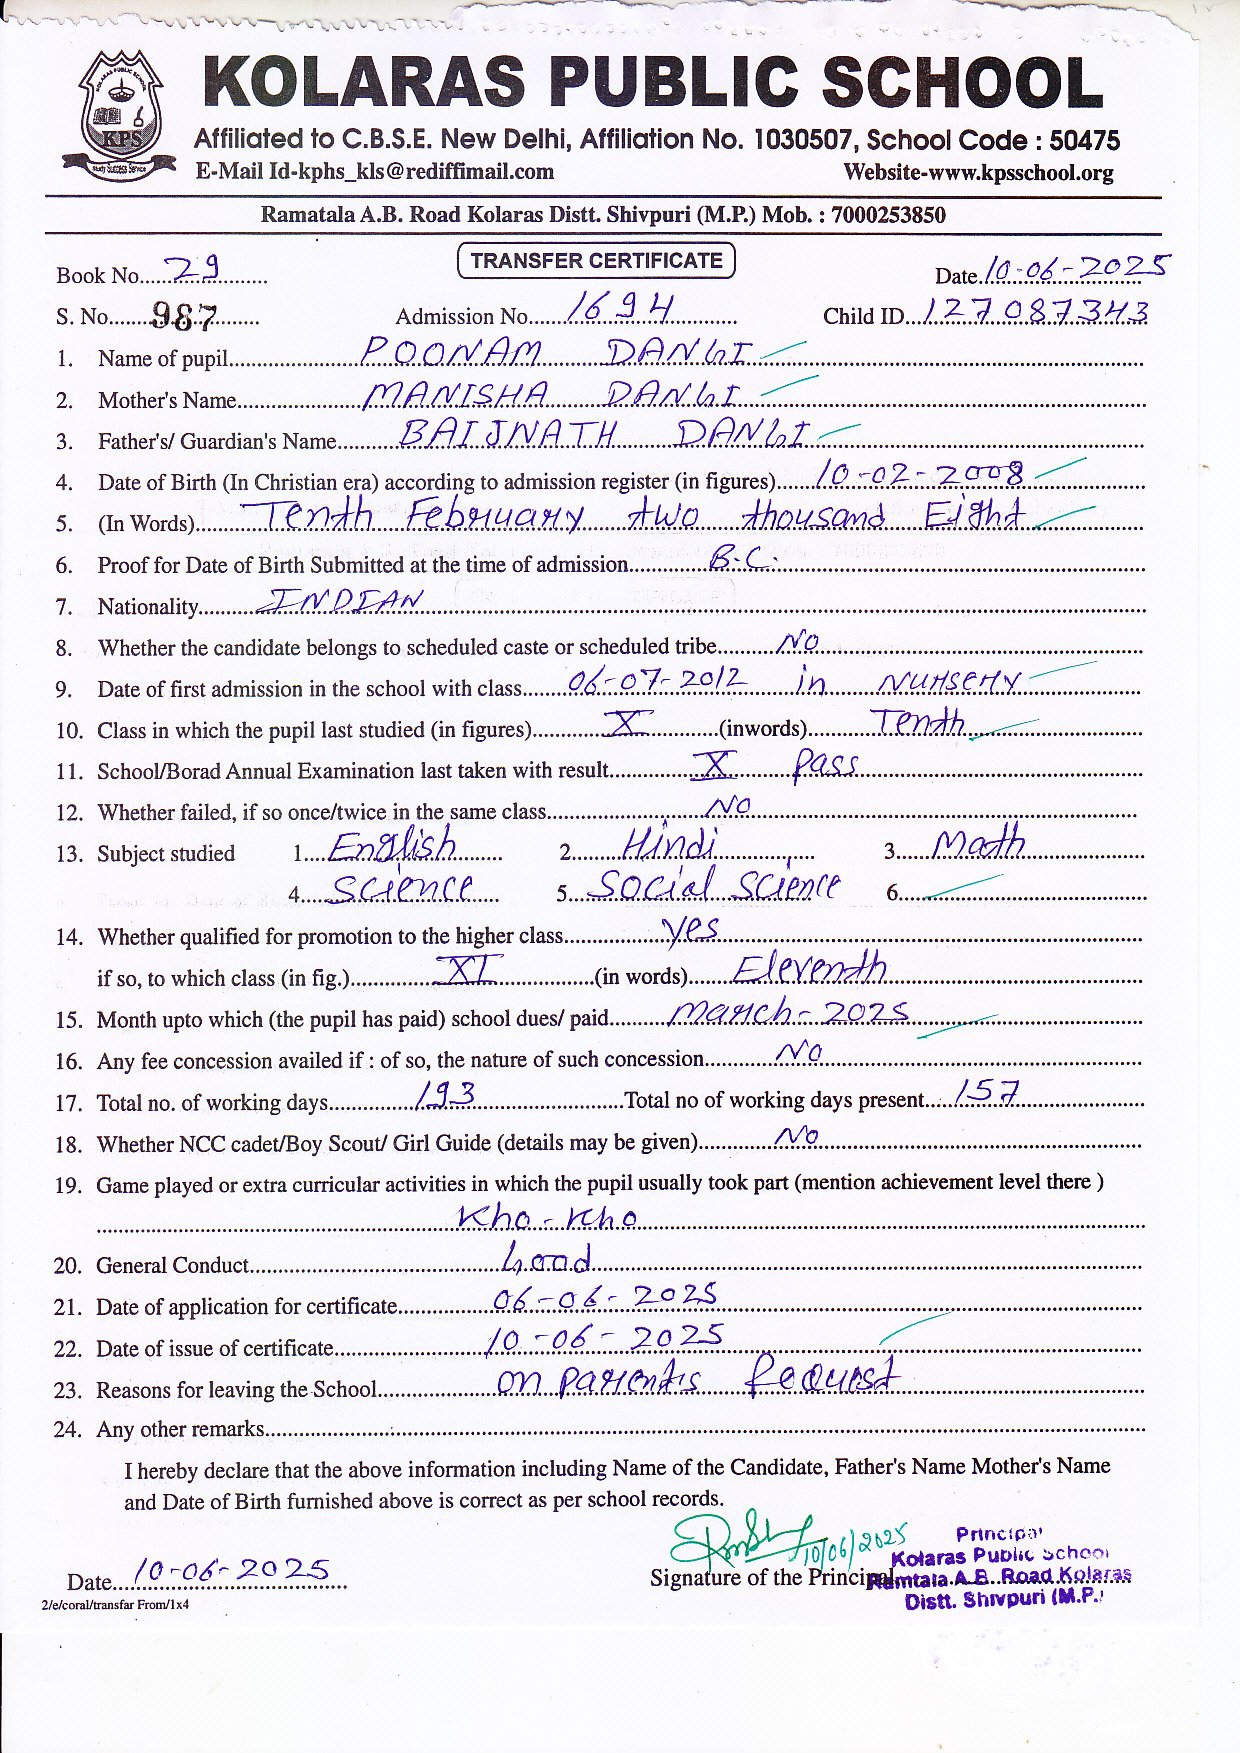 KOLARAS PUBLIC SCHOOL
KOLARAS PUBLIC SCHOOL
KPS
Study Success Service
Affiliated to C.B.S.E. New Delhi, Affiliation No. 1030507, School Code : 50475
E-Mail Id-kphs_kls@rediffimail.com Website-www.kpsschool.org
Ramatala A.B. Road Kolaras Distt. Shivpuri (M.P.) Mob. : 7000253850
TRANSFER CERTIFICATE
Book No. 29 Date. 10-06-2025
S. No. 987 Admission No. 1694 Child ID. 127087343
1. Name of pupil POONAM DANGI
2. Mother's Name MANISHA DANGI
3. Father's/ Guardian's Name BAIJNATH DANGI
4. Date of Birth (In Christian era) according to admission register (in figures) 10-02-2008
5. (In Words) Tenth February two thousand Eight
6. Proof for Date of Birth Submitted at the time of admission B.C.
7. Nationality INDIAN
8. Whether the candidate belongs to scheduled caste or scheduled tribe No
9. Date of first admission in the school with class 06-07-2012 in Nursery
10. Class in which the pupil last studied (in figures) X (inwords) Tenth
11. School/Borad Annual Examination last taken with result X Pass
12. Whether failed, if so once/twice in the same class NO
13. Subject studied 1. English 2. Hindi 3. Math
4. Science 5. Social Science 6.
14. Whether qualified for promotion to the higher class Yes
if so, to which class (in fig.) XI (in words) Eleventh
15. Month upto which (the pupil has paid) school dues/ paid March-2025
16. Any fee concession availed if : of so, the nature of such concession NO
17. Total no. of working days 193 Total no of working days present 157
18. Whether NCC cadet/Boy Scout/ Girl Guide (details may be given) No
19. Game played or extra curricular activities in which the pupil usually took part (mention achievement level there )
Kho-Kho
20. General Conduct Good
21. Date of application for certificate 06-06-2025
22. Date of issue of certificate 10-06-2025
23. Reasons for leaving the School on parents Request
24. Any other remarks
I hereby declare that the above information including Name of the Candidate, Father's Name Mother's Name
and Date of Birth furnished above is correct as per school records.
10/06/2025
Principal
Kolaras Public School
Date 10-06-2025 Signature of the Principal Ramtala.A.B. Road Kolaras
Distt. Shivpuri (M.P.)
2/e/coral/transfar From/1x4